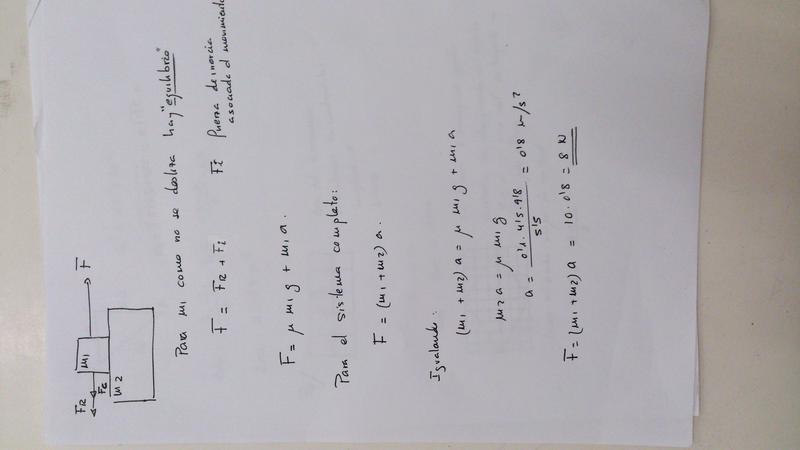 F̄
F̄R
Fi
m1
m2
Para m1 como no se desliza hay "equilibrio"
F̄ = F̄R + F̄i Fi fuerza de inercia
asociada al movimiento
F = μ m1 g + m1 a.
Para el sistema completo:
F = (m1 + m2) a.
Igualando:
(m1 + m2) a = μ m1 g + m1 a
m2 a = μ m1 g
a = 0'1 . 4'5 . 9'8 / 5'5 = 0'8 m/s²
F = (m1 + m2) a = 10 . 0'8 = 8 N